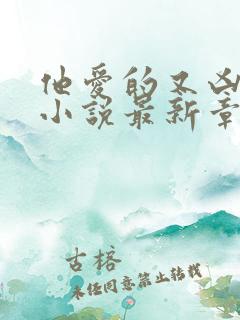 他爱的又凶
小说最新章
古榕
未经同意禁止转载